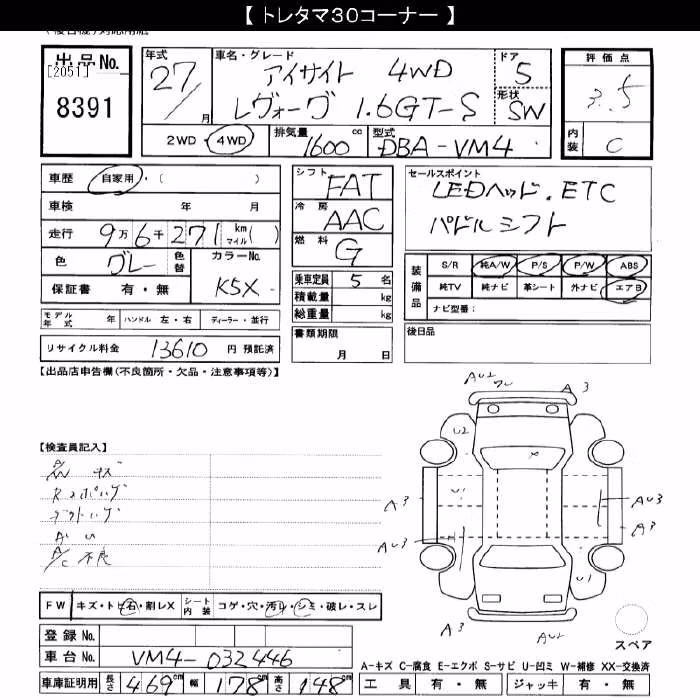 【 トレタマ30コーナー 】
出品No.
[2051]
8391
年式
27/
月
車名・グレード
アイサイト 4WD
レヴォーグ 1.6GT-S
ドア
5
形状
SW
評価点
3.5
内装
C
2WD・4WD
排気量
1600 cc
型式
DBA-VM4
車歴 自家用・( )
車検 年 月
走行 9万6千271 km マイル( )
色 グレー 色替 カラーNo. K5X
保証書 有・無
モデル年式 年 ハンドル 左・右 ディーラー・並行
リサイクル料金 13610 円 預託済
シフト FAT
冷房 AAC
燃料 G
乗車定員 5 名
積載量 kg
総重量 kg
書類期限
月 日
セールスポイント
LEDヘッド.ETC
パドルシフト
装備品
S/R 純A/W P/S P/W ABS
純TV 純ナビ 革シート 外ナビ エアB
ナビ型番:
後日品
【出品店申告欄(不良箇所・欠品・注意事項等)】
【検査員記入】
A/C 不良
AU2
A3
U2
U1
AU3
A3
A3
AU3
A3
U1
A3
AU2
FW キズ・トビ石・割レX シート内装 コゲ・穴・汚レ・シミ・破レ・スレ
スペア
登録No.
車台No. VM4-032446
A-キズ C-腐食 E-エクボ S-サビ U-凹ミ W-補修 XX-交換済
車庫証明用 長さ 469cm 幅 178cm 高さ 148cm
工具 有・無 ジャッキ 有・無